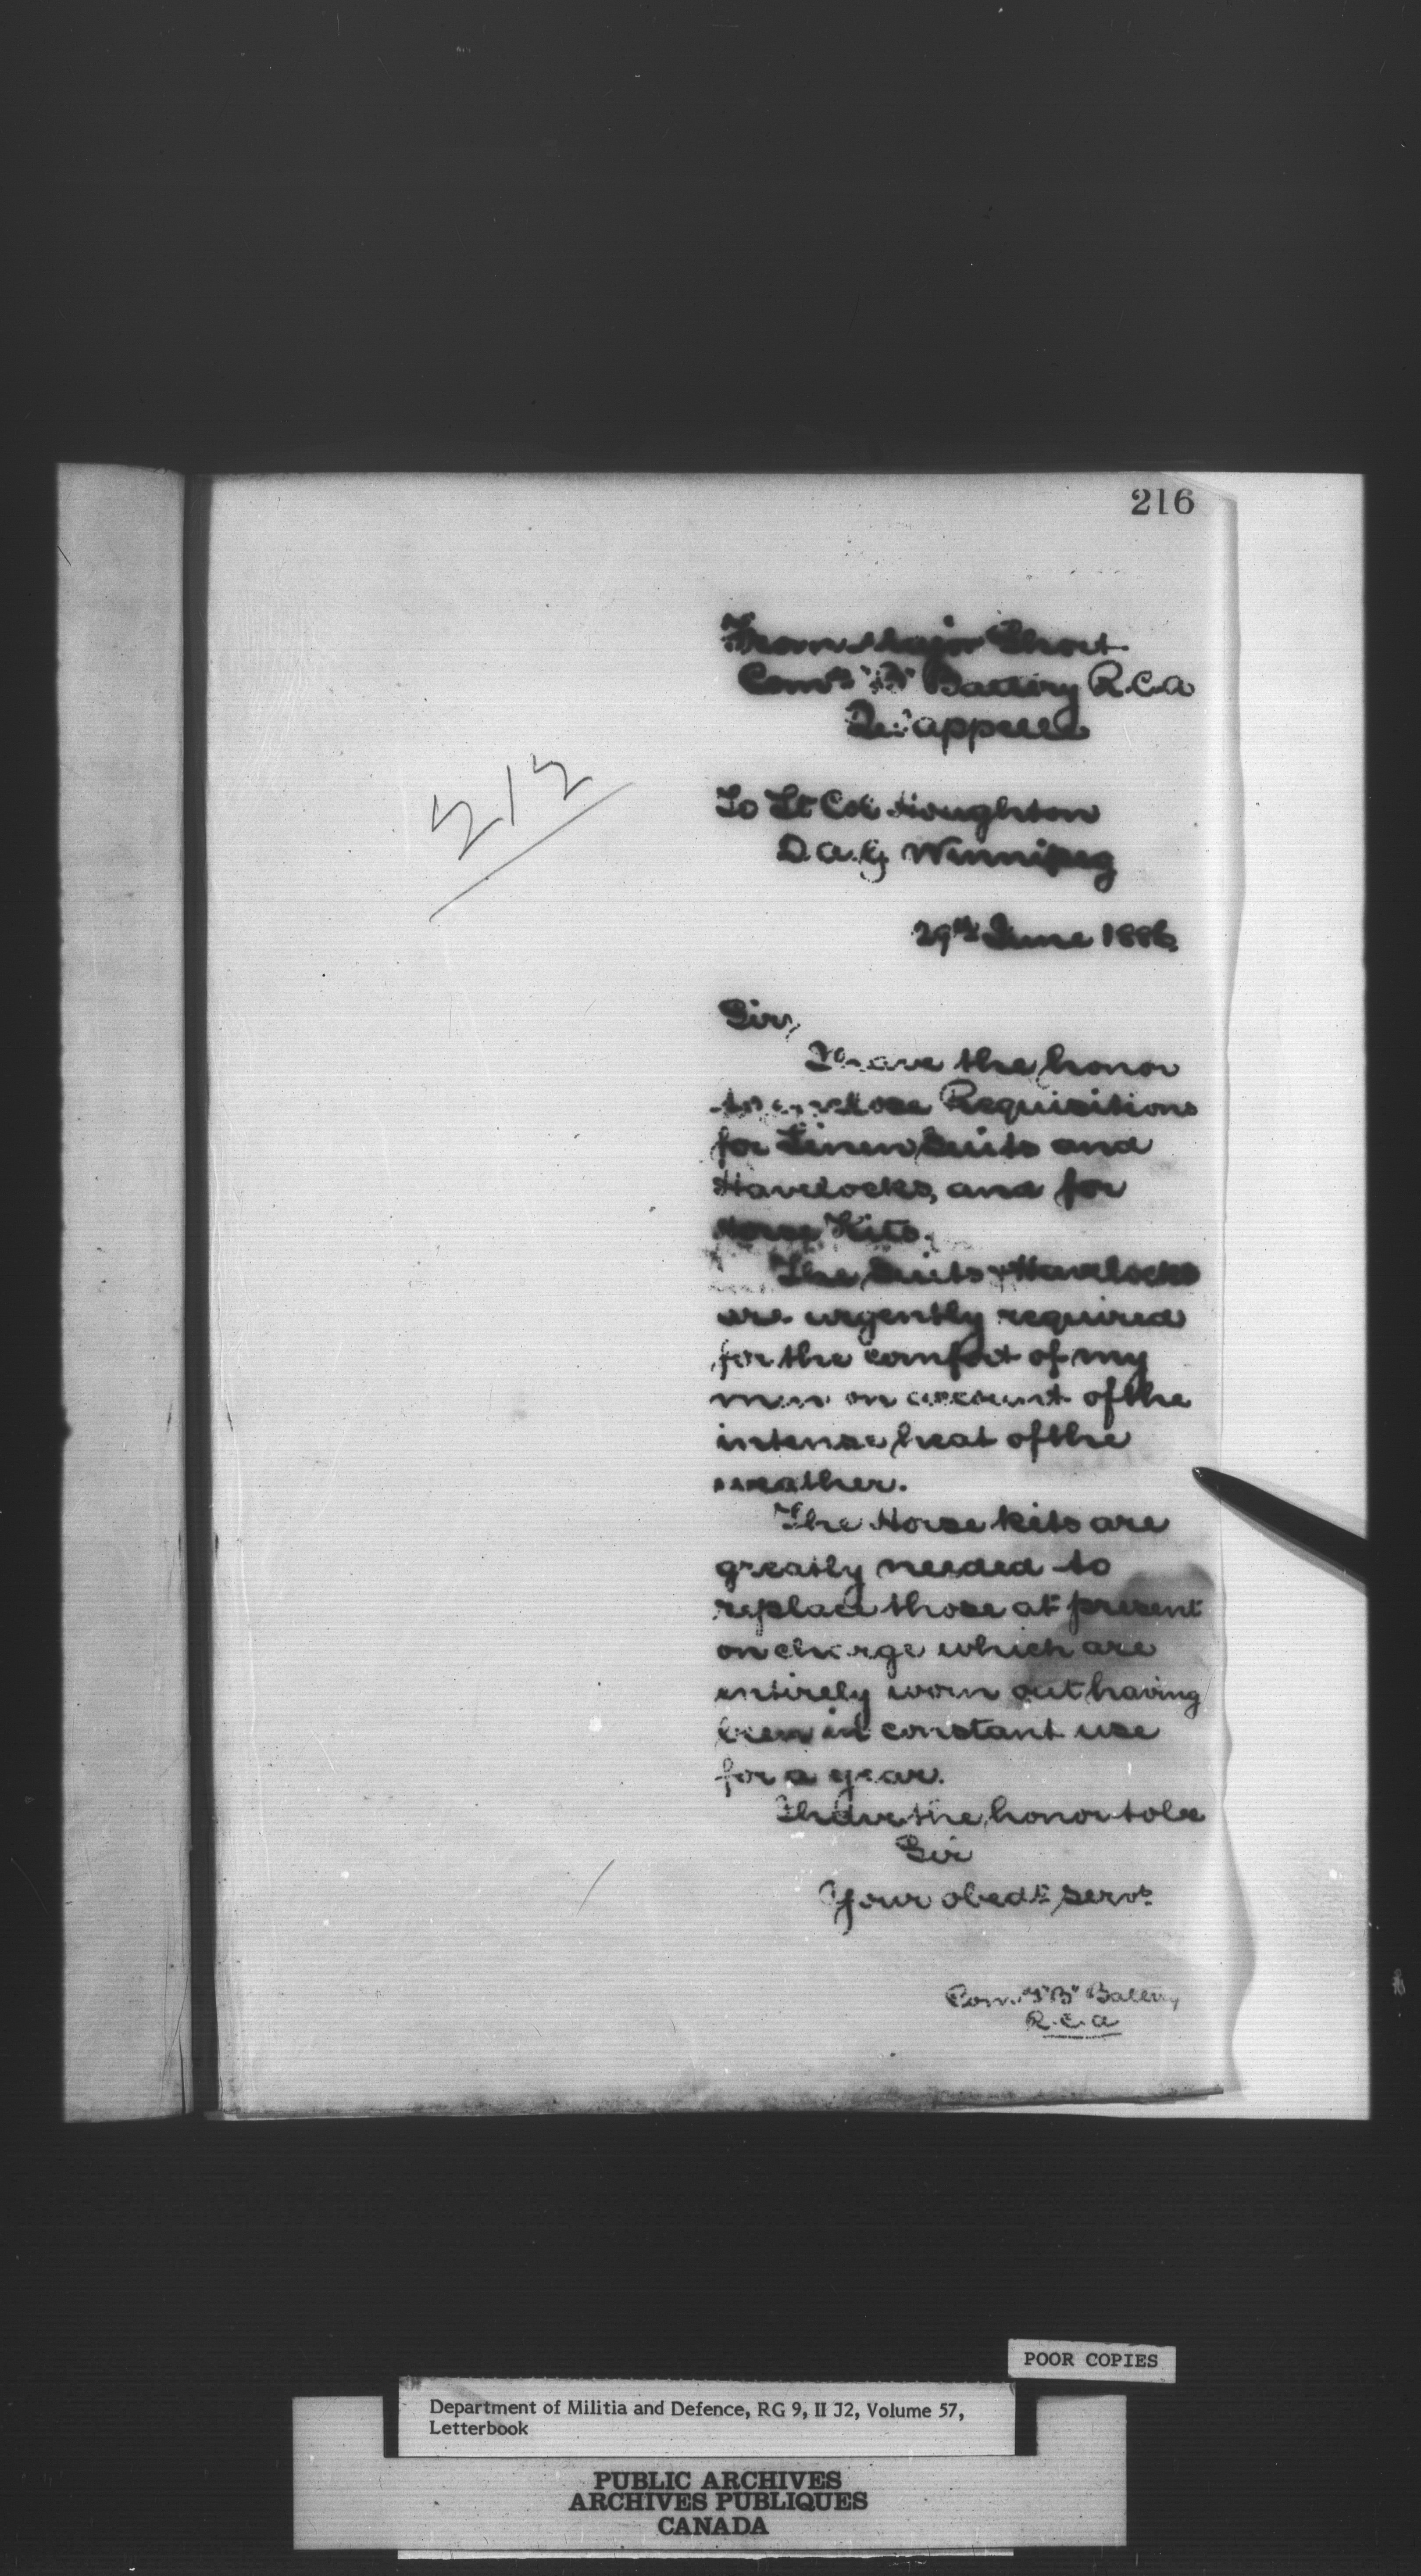 216
From Major Short
Comdg "B" Battery R.C.A
Qu'appelle
212
To Lt Col Houghton
D.A.G. Winnipeg
29th June 1886
Sir,
I have the honor
to enclose Requisitions
for Linen Suits and
Havelocks, and for
Horse Kits.
The Suits & Havelocks
are urgently required
for the comfort of my
men on account of the
intense heat of the
weather.
The Horse kits are
greatly needed to
replace those at present
on charge which are
entirely worn out having
been in constant use
for a year.
I have the honor to be
Sir
Your obedt servt
Comdg "B" Battery
R.C.A
POOR COPIES
Department of Militia and Defence, RG 9, II J2, Volume 57,
Letterbook
PUBLIC ARCHIVES
ARCHIVES PUBLIQUES
CANADA